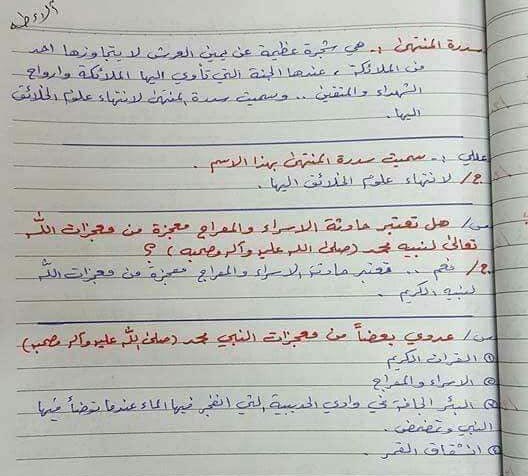 سدرة المنتهى :- هي شجرة عظيمة عن يمين العرش لا يتجاوزها احد
من الملائكة ، عندها الجنة التي تأوي اليها الملائكة وارواح
الشهداء والمتقين .. وسميت سدرة المنتهى لانتهاء علوم الخلائق
اليها .
عللي :- سميت سدرة المنتهى بهذا الاسم .
ج/ لانتهاء علوم الخلائق اليها .
س/ هل تعتبر حادثة الاسراء والمعراج معجزة من معجزات الله
تعالى لنبيه محمد (صلى الله عليه وآله وصحبه) ؟
ج/ نعم .. تعتبر حادثة الاسراء والمعراج معجزة من معجزات الله
لنبيه الكريم .
س/ عددي بعضاً من معجزات النبي محمد (صلى الله عليه وآله وصحبه)
① القرآن الكريم
② الاسراء والمعراج
③ البئر الجافة في وادي الحديبية التي انفجر فيها الماء عندما توضأ فيها
النبي وتمضمض .
④ انشقاق القمر .